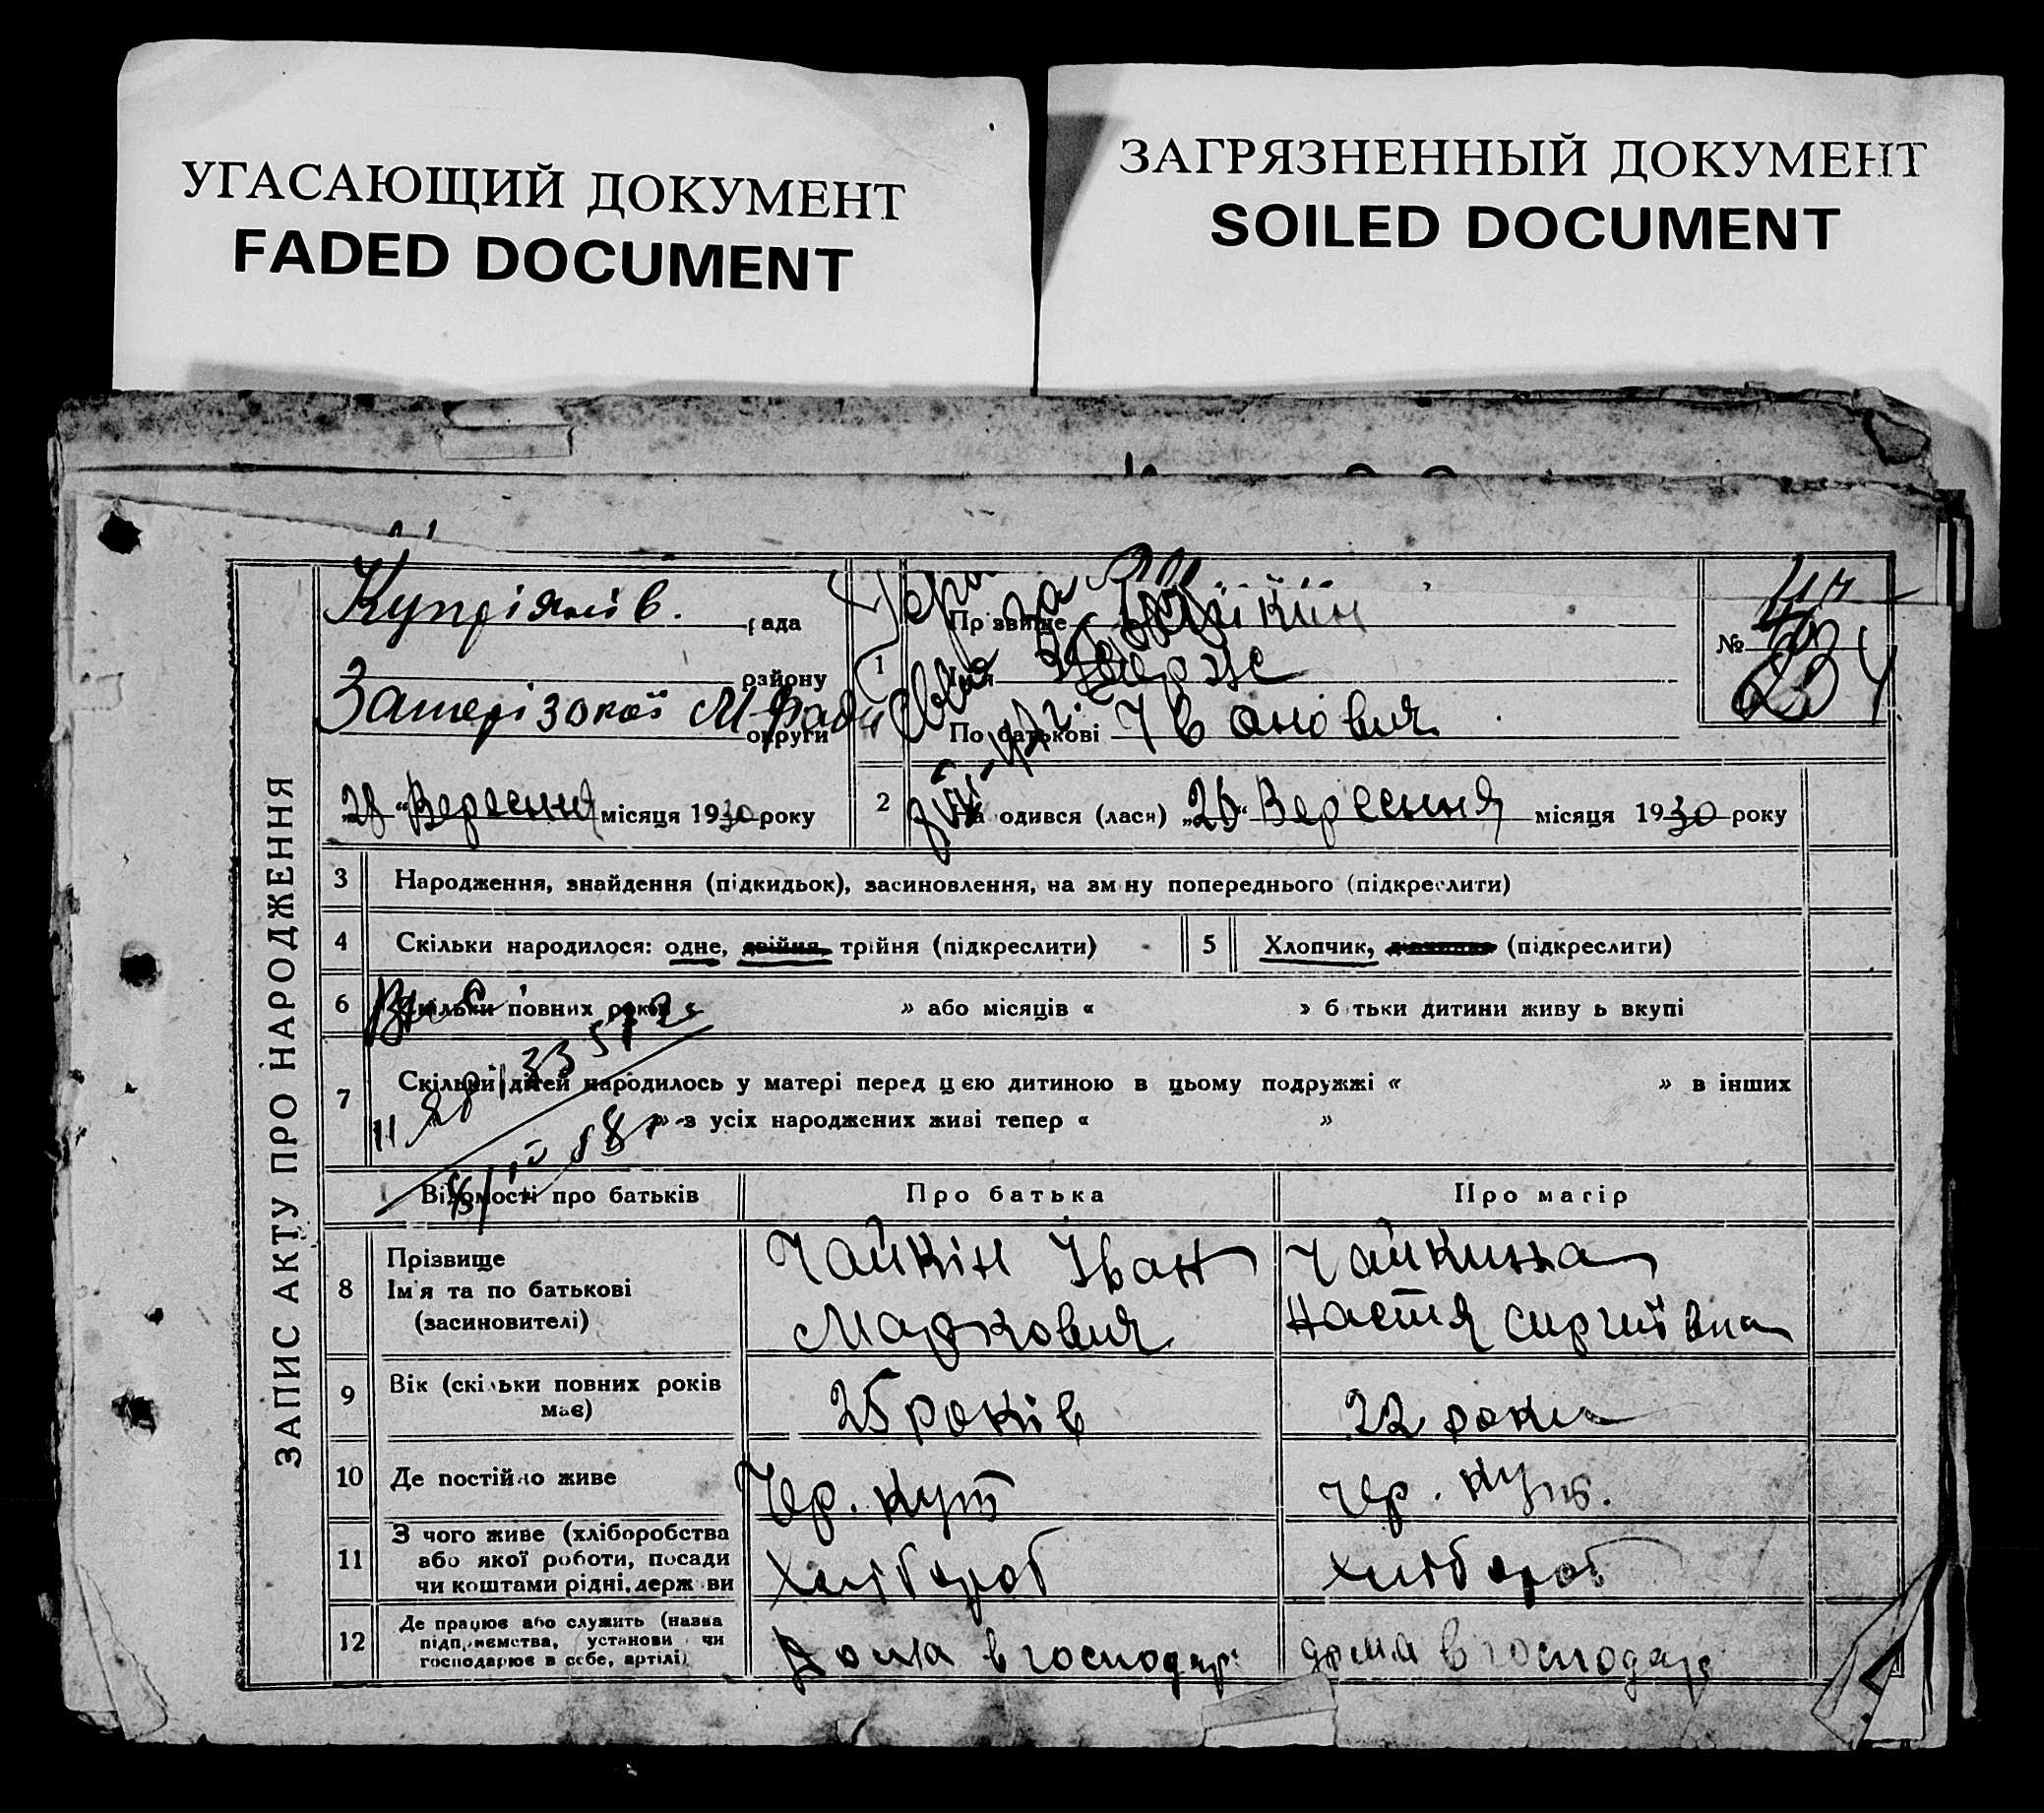 УГАСАЮЩИЙ ДОКУМЕНТ
FADED DOCUMENT
ЗАГРЯЗНЕННЫЙ ДОКУМЕНТ
SOILED DOCUMENT
ЗАПИС АКТУ ПРО НАРОДЖЕННЯ
рада
району
округи
28 "Вересня місяця 1930 року
1
Прізвище Чайкін
Ім'я
По батькові Іванович
№
2
одився (лася) „ " Вересня місяця 1930 року
3 Народження, знайдення (підкидьок), засиновлення, на зміну попереднього (підкреслити)
4 Скільки народилося: одне, двійня, трійня (підкреслити)
5 Хлопчик, дівчинка (підкреслити)
6 Скільки повних років » або місяців « » батьки дитини живуть вкупі
7 Скільки дітей народилось у матері перед цією дитиною в цьому подружжі « » в інших
» з усіх народжених живі тепер « »
Відомості про батьків Про батька Про матір
8 Прізвище Ім'я та по батькові (засиновителі)
Чайкін Іван Маркович
Чайкина Настя Сиргиівна
9 Вік (скільки повних років має) 25 років 22 роки
10 Де постійно живе Чер. Кут Чер. Кут.
11 З чого живе (хліборобства або якої роботи, посади чи коштами рідні, держави Хлібороб Хлібороб
12 Де працює або служить (назва підприємства, установи чи господарює в себе, артілі) Дома в господар дома в господар